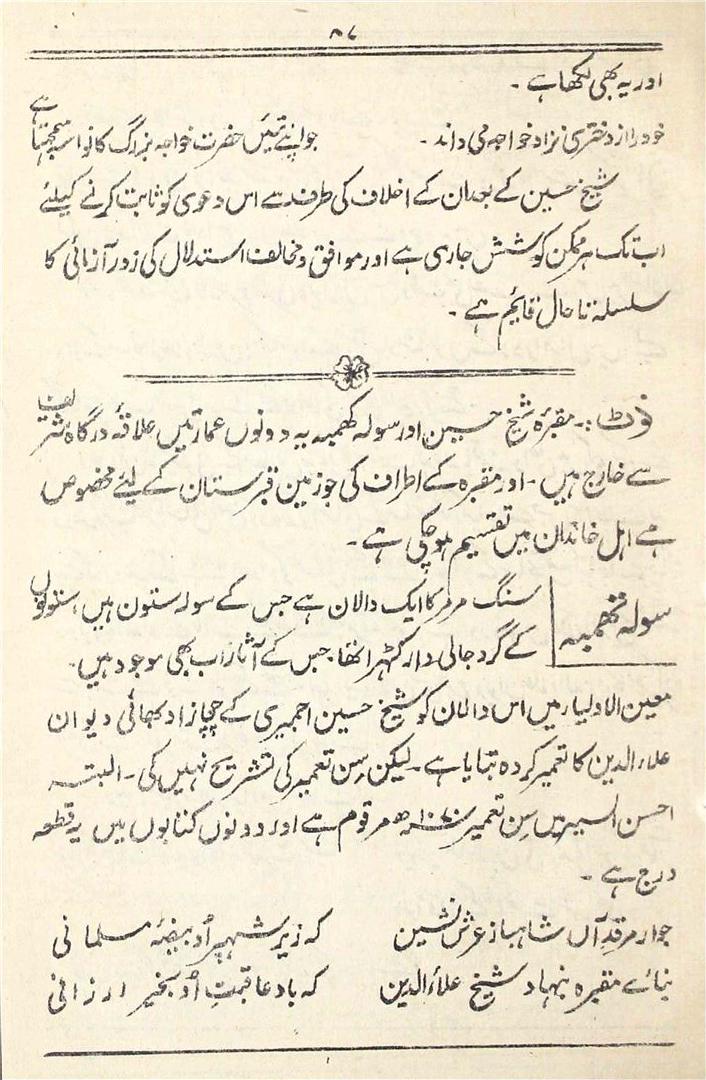 ۸۷
اور یہ بھی لکھا ہے ۔
خود را از دختری نژاد خواجہ می داند ۔ جو اپنے تئیں حضرت خواجہ بزرگ کا نواسہ سمجھتا ہے
شیخ حسین کے بعد ان کے اخلاف کی طرف سے اس دعوی کو ثابت کرنے کیلئے
اب تک ہر ممکن کوشش جاری ہے اور موافق و مخالف استدلال کی زور آزمائی کا
سلسلہ تا حال قایٔم ہے ۔
نوٹ :۔ مقبرہ شیخ حسین اور سولہ کھمبہ یہ دونوں عمارتیں علاقۂ درگاہ شریف
سے خارج ہیں ۔ اور مقبرہ کے اطراف کی جو زمین قبرستان کے لئے مخصوص
ہے اہل خاندان میں تقسیم ہو چکی ہے ۔
سولہ تھمبہ سنگ مرمر کا ایک دالان ہے جس کے سولہ ستون ہیں، ستونوں
کے گرد جالی دار کٹہرا تھا جس کے آثار اب بھی موجود ہیں ۔
معین الاولیاء میں اس دالان کو شیخ حسین اجمیری کے چچا زاد بھائی دیوان
علاء الدین کا تعمیر کردہ بتایا ہے ۔ لیکن سن تعمیر کی تشریح نہیں کی ۔ البتہ
احسن السیر میں سن تعمیر ۱۰۷۰ھ مرقوم ہے اور دونوں کتابوں میں یہ قطعہ
درج ہے ۔
جوار مرقد آں شاہباز عرش نشین کہ زیر شہپر اُو بیضۂ مسلمانی
بنائے مقبرہ بنہاد شیخ علاء الدین کہ باد عاقبت اُو بخیر ارزانی